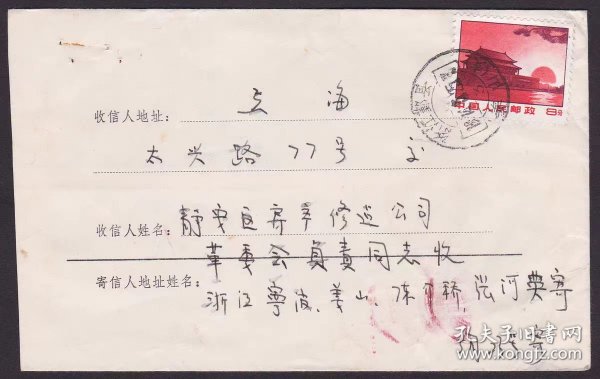 中国人民邮政 8分
收信人地址: 上 海
太兴路77号 交
收信人姓名: 静安区房产修造公司
革委会负责同志收
寄信人地址姓名: 浙江宁波、姜山、陈 桥, 河 寄
孔夫子旧书网
www.kongfz.com